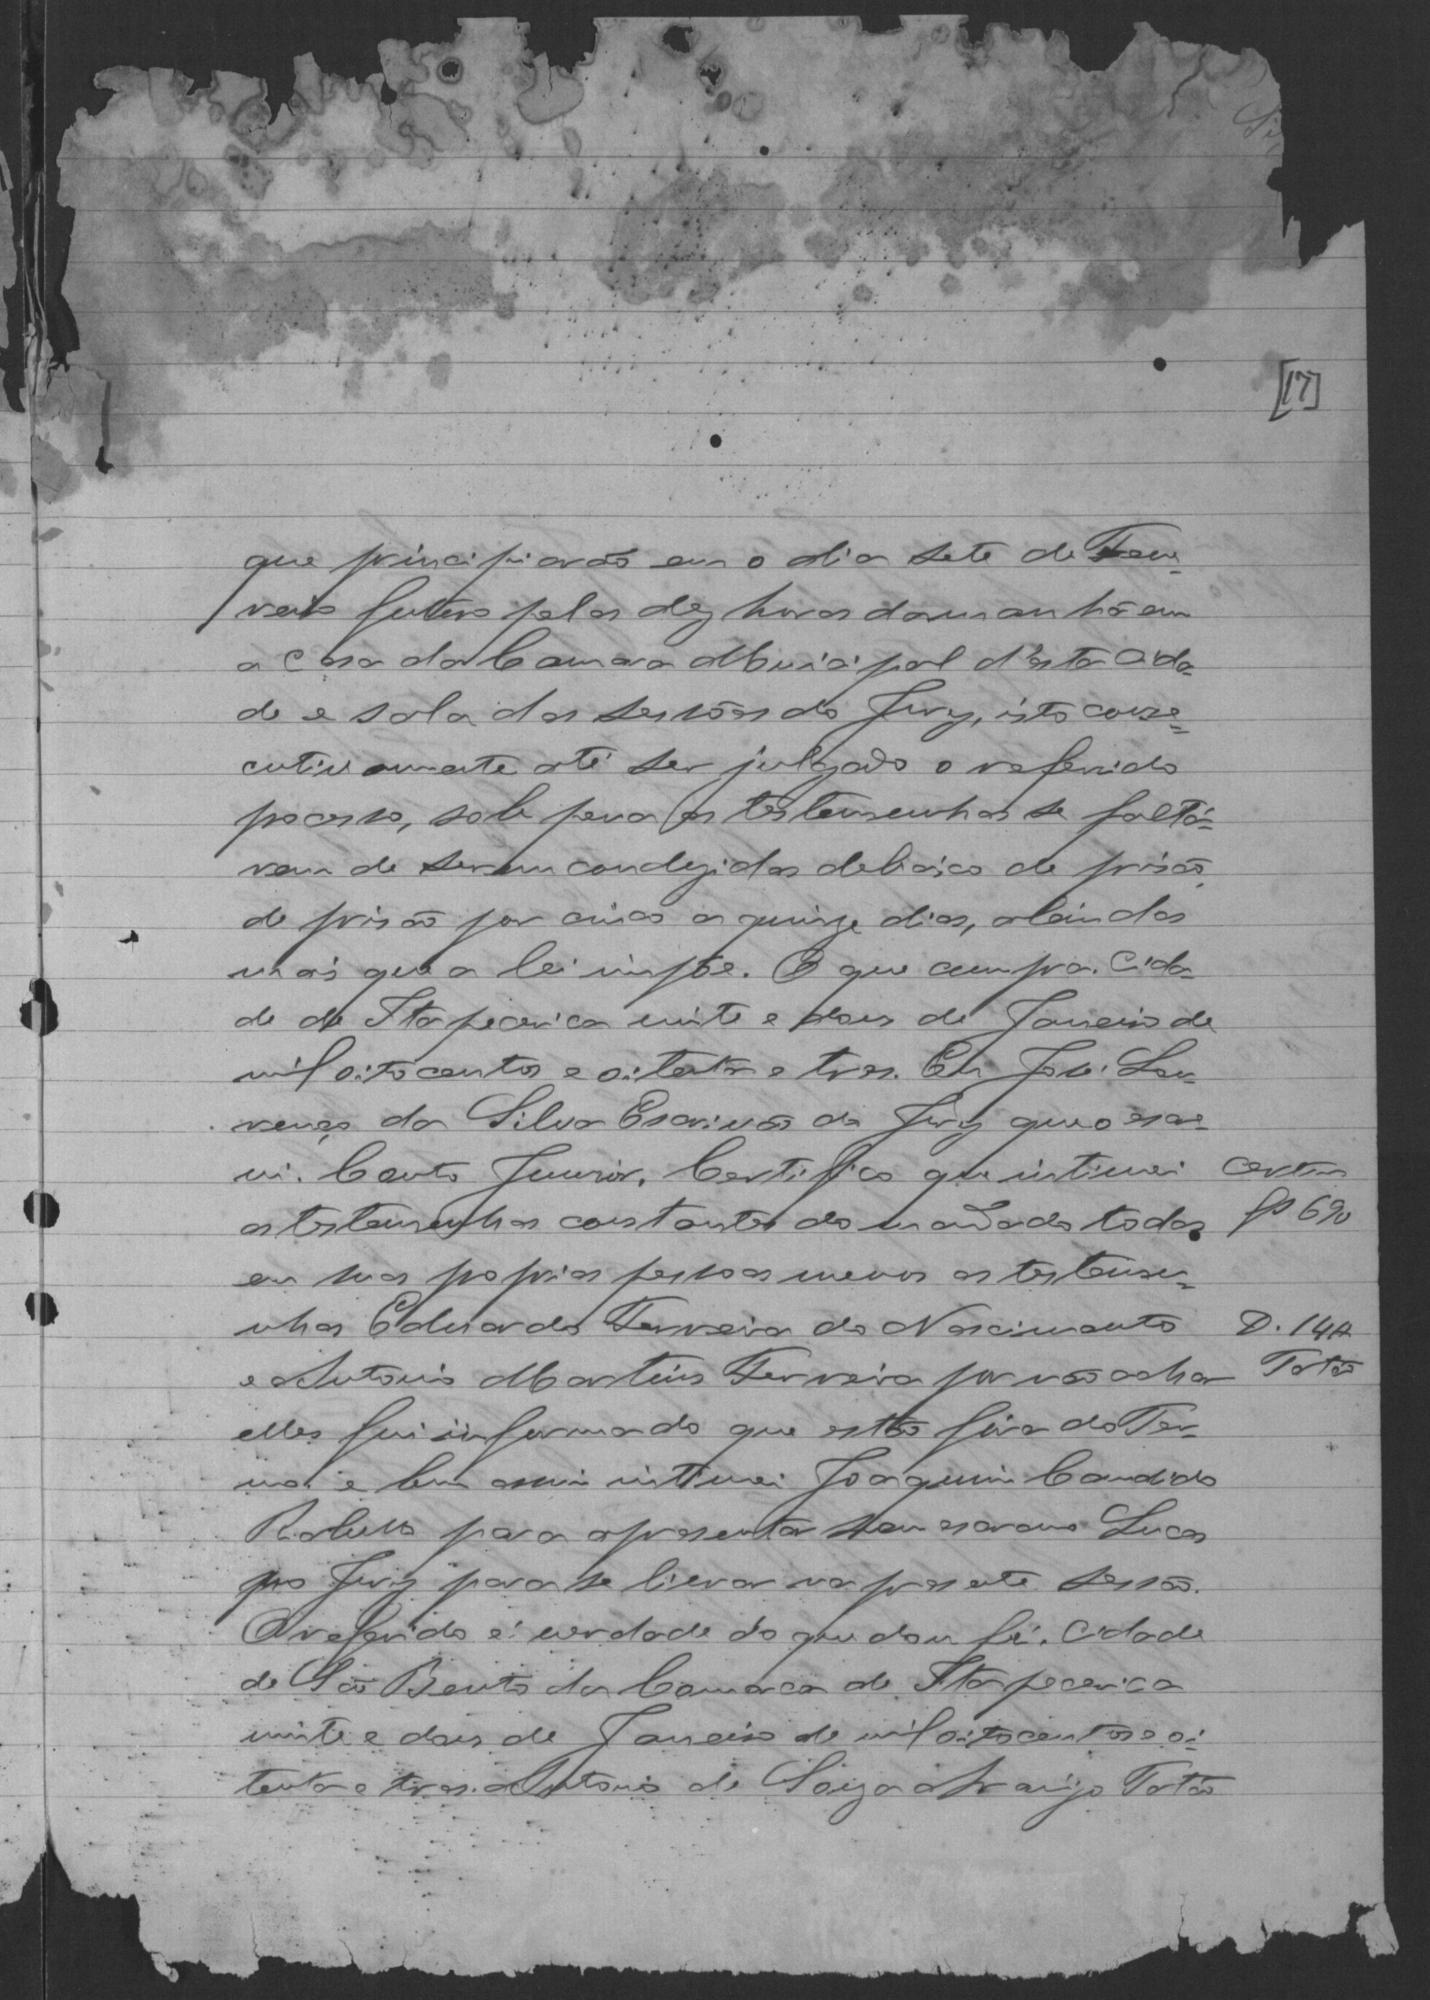 [17]
que principiarão em o dia sete de Feve-
reiro futuro pelas dez horas damanhã em
a casa da Camara Municipal d'esta Cida-
de e sala das sessões do Jury, isto conse-
cutivamente até ser julgado o referido
pocesso, sob pena as testemunhas se faltá-
rem de serem condusidas debaixo de prisão,
de prisão por cinco a quinze dias, alem das
mais que a lei impõe. O que cumpra. Cida-
de de Itapecerica vinte e dous de Janeiro de
mil oitocentos e oitenta e tres. Eu José Lou-
renço da Silva Escrivão do Jury que o escre-
vi. Couto Junior. Certifico que intimei
as testemunhas constantes do mandado todas
em suas proprias pessoas menos as testemu-
nhas Eduardo Ferreira do Nascimento
e Antonio Martins Ferreira por não achar
elles fui informado que estão fóra do Ter-
mo e bem assim intimei Joaquim Candido
Rabello para apresentar seu escravo Lucas
no Jury para se livrar na presente sessão.
O referido é verdade do que dou fé. Cidade
de São Bento da Comarca de Itapecerica
vinte e dous de Janeiro de mil oitocentos e oi-
tenta e tres. Antonio de Souza Araujo Tatão
Certim
fs 69v
D. 14A
Tatão